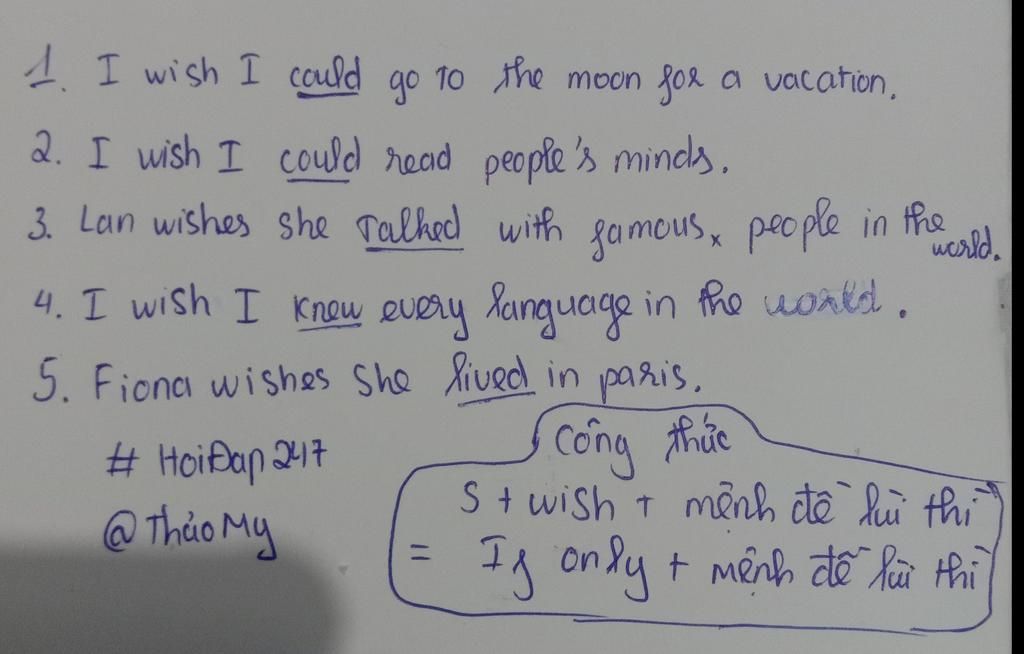 1. I wish I could go to the moon for a vacation.
2. I wish I could read people's minds.
3. Lan wishes she talked with famous x people in the world.
4. I wish I knew every language in the world.
5. Fiona wishes she lived in paris.
# HoiĐap247
@ThảoMy
Công thức
S + wish + mệnh đề lùi thì
= If only + mệnh đề lùi thì